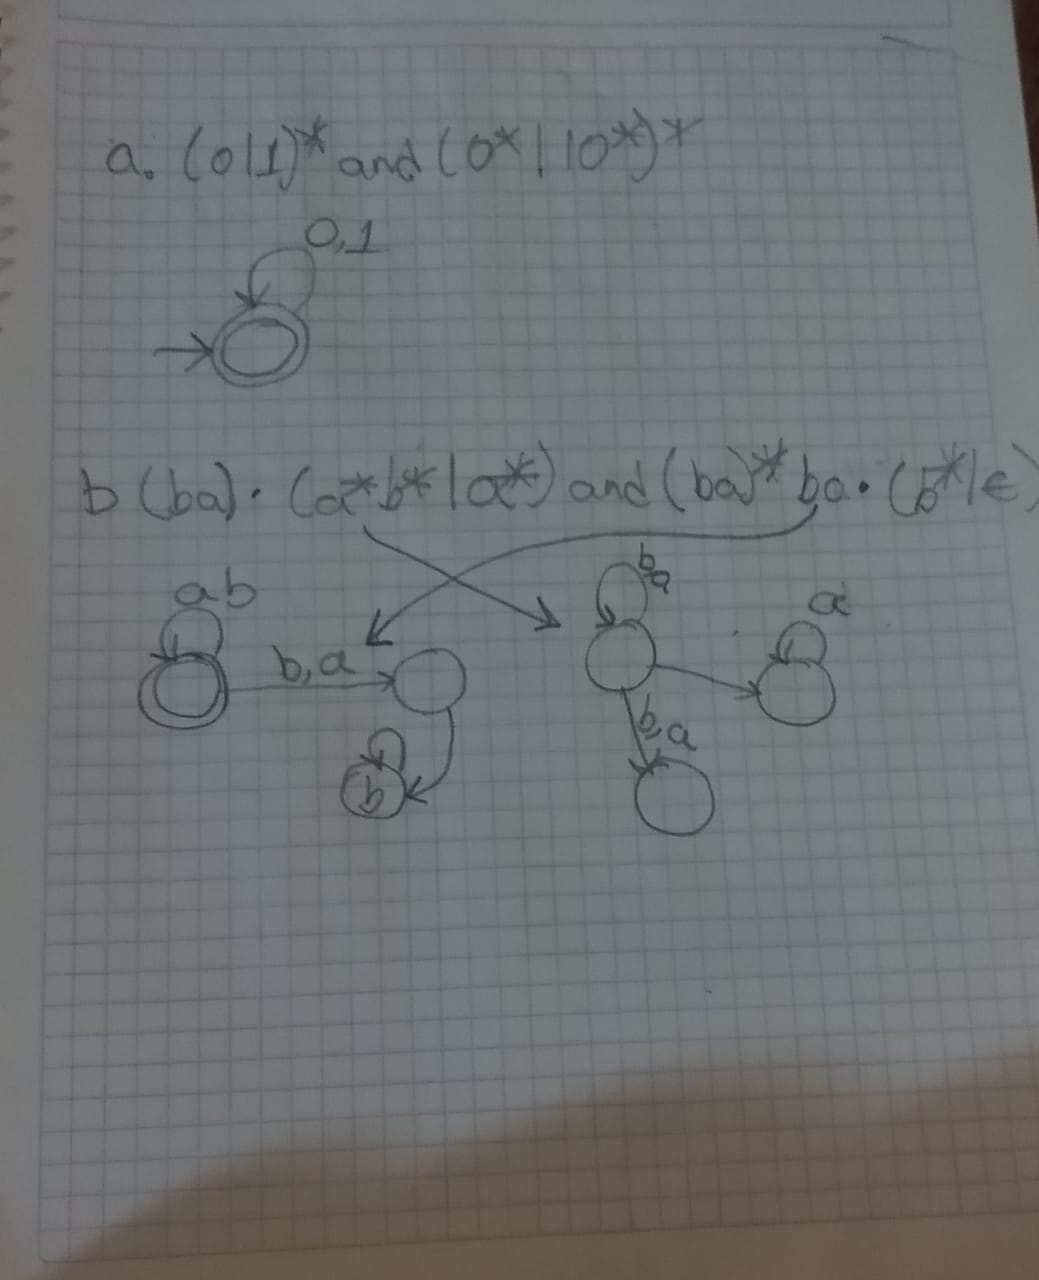 a. (0|1)* and (0*|10*)*
0,1
b (ba)· (a*b*|a*) and (ba)* ba· (b*|ϵ)
ab
b,a
b
b,a
a
b,a